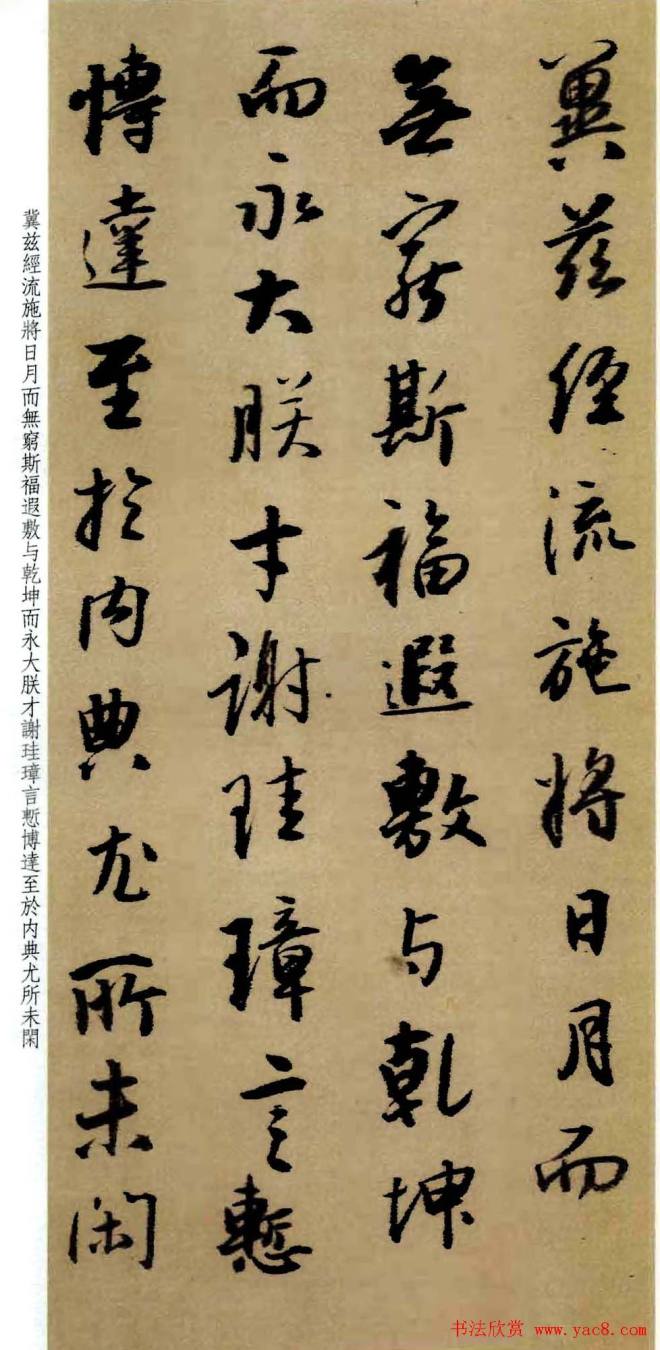 冀茲經流施將日月而
無窮斯福遐敷与乾坤
而永大朕才謝珪璋言慙
博達至於内典尤所未閑
冀兹經流施將日月而無窮斯福遐敷与乾坤而永大朕才謝珪璋言慙博達至於内典尤所未閑
书法欣赏 www.yac8.com